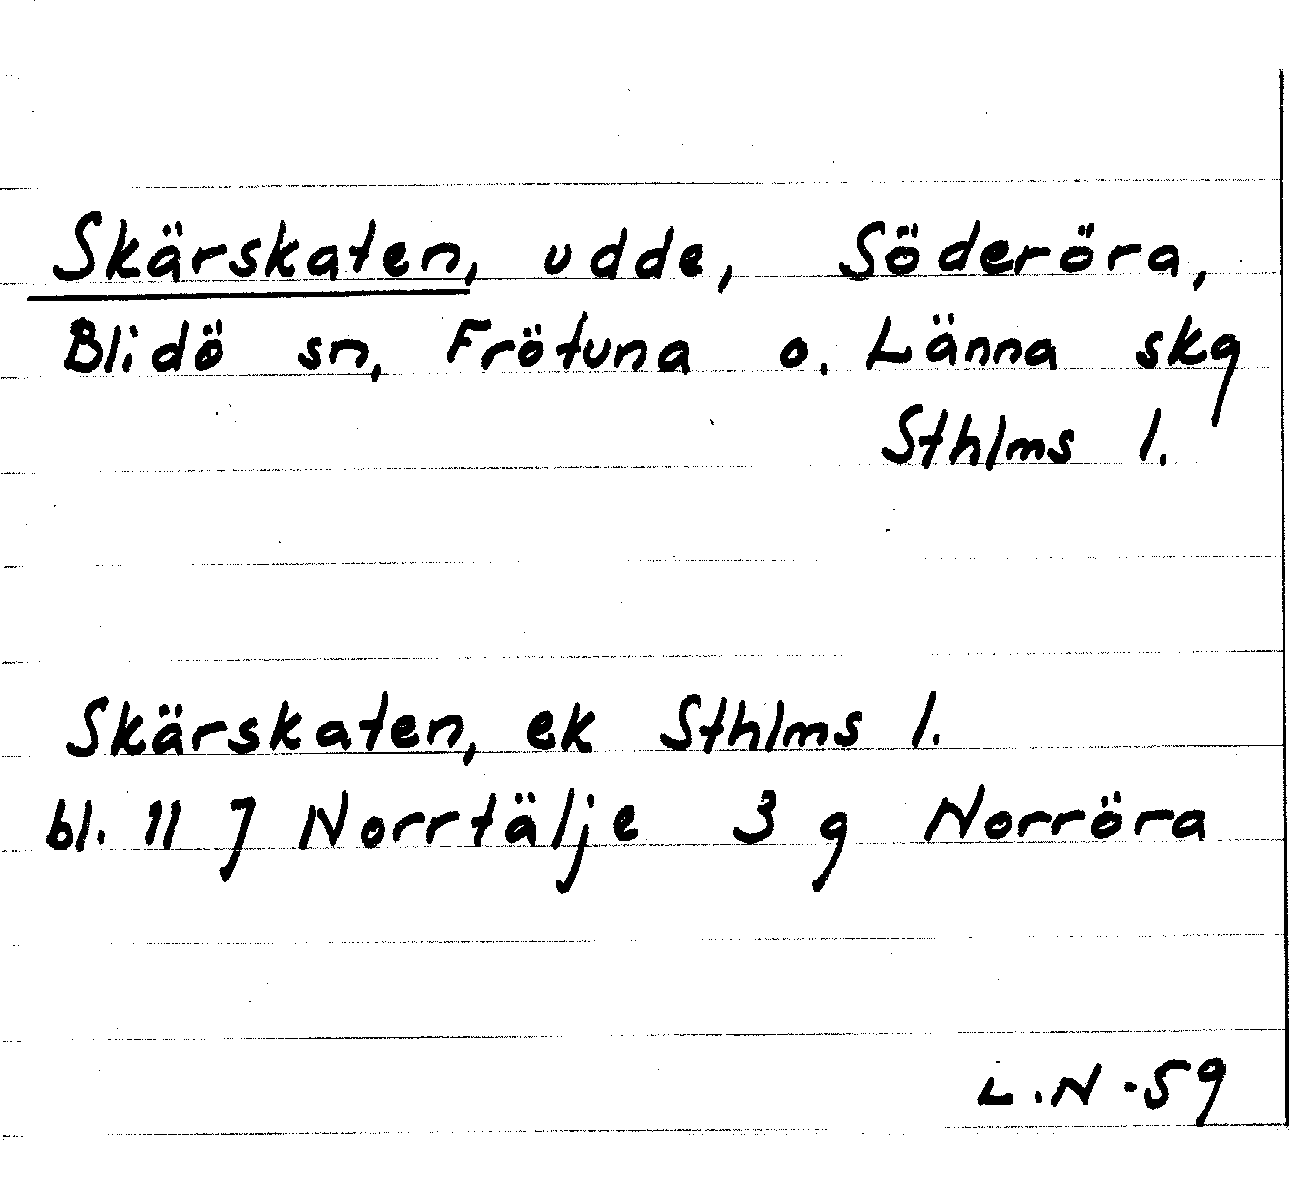 Skärskaten, udde, Söderöra,
Blidö sn, Frötuna o. Länna skg
Sthlms l.
Skärskaten, ek Sthlms l.
bl. 11 J Norrtälje 3 g Norröra
L.N -59